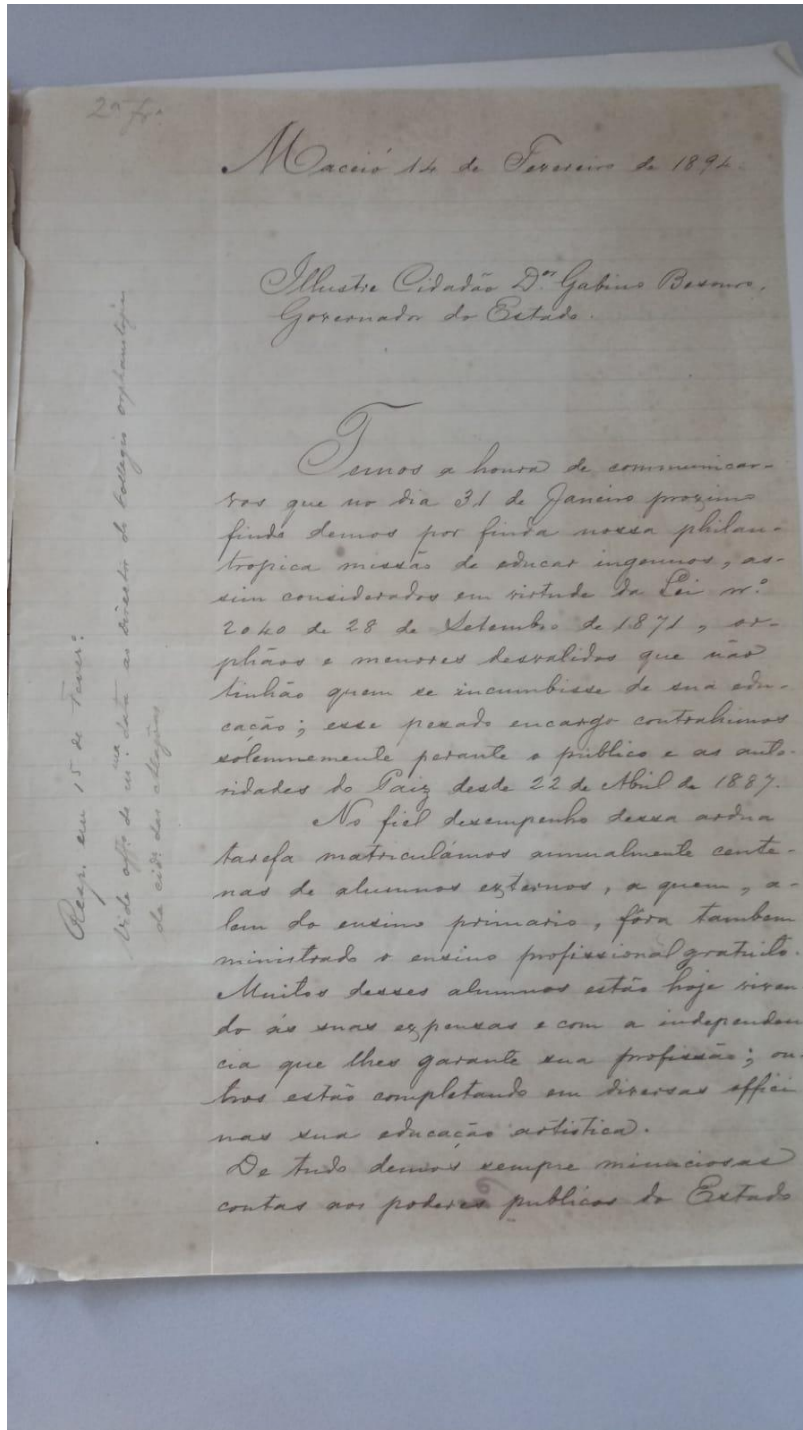 2ª
Maceió 14 de Fevereiro de 1894.
Illustre Cidadão Dor Gabino Besouro,
Governador do Estado.
Temos a honra de communicar-
vos que no dia 31 de Janeiro proximo
findo demos por finda nossa philan-
tropica missão de educar ingenuos, as-
sim considerados em virtude da Lei nº
2040 de 28 de Setembro de 1871, or-
phãos e menores desvalidos que não
tinhão quem se incumbisse de sua edu-
cação; esse pezado encargo contrahimos
solemnemente perante o publico e as auto-
ridades do Paiz desde 22 de Abril de 1887.
No fiel desempenho dessa ardua
tarefa matriculámos annualmente cente-
nas de alumnos externos, a quem, a-
lem do ensino primario, fôra tambem
ministrado o ensino profissional gratuito.
Muitos desses alumnos estão hoje viven
do ás suas expensas e com a independen
cia que lhes garante sua profissão; ou-
tros estão completando em diversas offici
nas sua educação artistica.
De tudo demos sempre minuciosas
contas aos poderes publicos do Estado
Resp. em 15 de Fever.º
Vide offº de m.ma data ao director do collegio
da cidᵉ das Alagôas